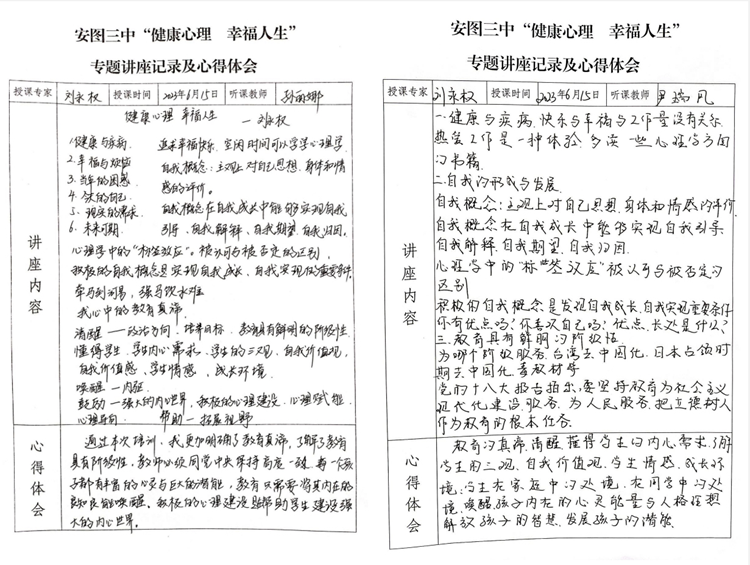 安图三中“健康心理 幸福人生”
专题讲座记录及心得体会
授课专家 刘永权 授课时间 2023年6月15日 听课教师 孙丽娜
讲座内容
健康心理 幸福人生
—刘永权
1.健康与疾病 追求幸福快乐 空闲时间可以学学心理学
2.幸福与烦恼 自我概念:主观上对自己思想、身体和情
3.当年的困惑 感的评价。
4.今天的自己 自我概念在自我成长中能够实现自我
5.现实的需求 引导、自我解释、自我期望、自我归因。
6.未来可期
心理学中的“标签效应”。被认可与被否定的区别
积极的自我概念是实现自我成长、自我实现的重要条件
牵马到河易,强马饮水难
我心中的教育真谛
清醒——政治方向、培养目标、教育具有鲜明的阶级性
懂得学生、学生内心需求、学生的三观、自我价值观,
自我价值感、学生情感、成长环境
唤醒—内在
鼓励—强大的内心世界、积极的心理建设、心理赋能
心理导向 帮助—拓展视野
心得体会
通过本次培训,我更加明确了教育真谛,了解了教育
具有阶级性。教师必须同党中央保持高度一致。每一个孩
子都有丰富的心灵与巨大的潜能,教育只需要将其内在的
良知良能唤醒。积极的心理建设能帮助学生建设强
大的内心世界。
安图三中“健康心理 幸福人生”
专题讲座记录及心得体会
授课专家 刘永权 授课时间 2023年6月15日 听课教师 尹瑞凤
讲座内容
一.健康与疾病,快乐与幸福与工作量没有关系
热爱工作是一种体验,多读一些心理学方面
的书籍.
二.自我的形成与发展.
自我概念:主观上对自己思想.身体和情感的评价.
自我概念在自我成长中能够实现自我引导
自我解释.自我期望.自我归因.
心理学中的“标签效应”被认可与被否定的
区别
积极的自我概念是发现自我成长.自我实现重要条件
你有优点吗?你喜欢自己吗?优点、长处是什么?
三.教育具有鲜明的阶级性
为哪个阶级服务.台湾去中国化.日本占领时
期去中国化.看教材等
党的十八大报告指出:要坚持教育为社会主义
现代化建设服务.为人民服务.把立德树人
作为教育的根本任务.
心得体会
教育的真谛.清醒.懂得学生的内心需求.了解
学生的三观.自我价值观.学生情感.成长环
境.学生在家庭中的处境.在同学中的处
境.唤醒孩子内在的心灵能量与人格理想
解放孩子的智慧.发展孩子的潜能.